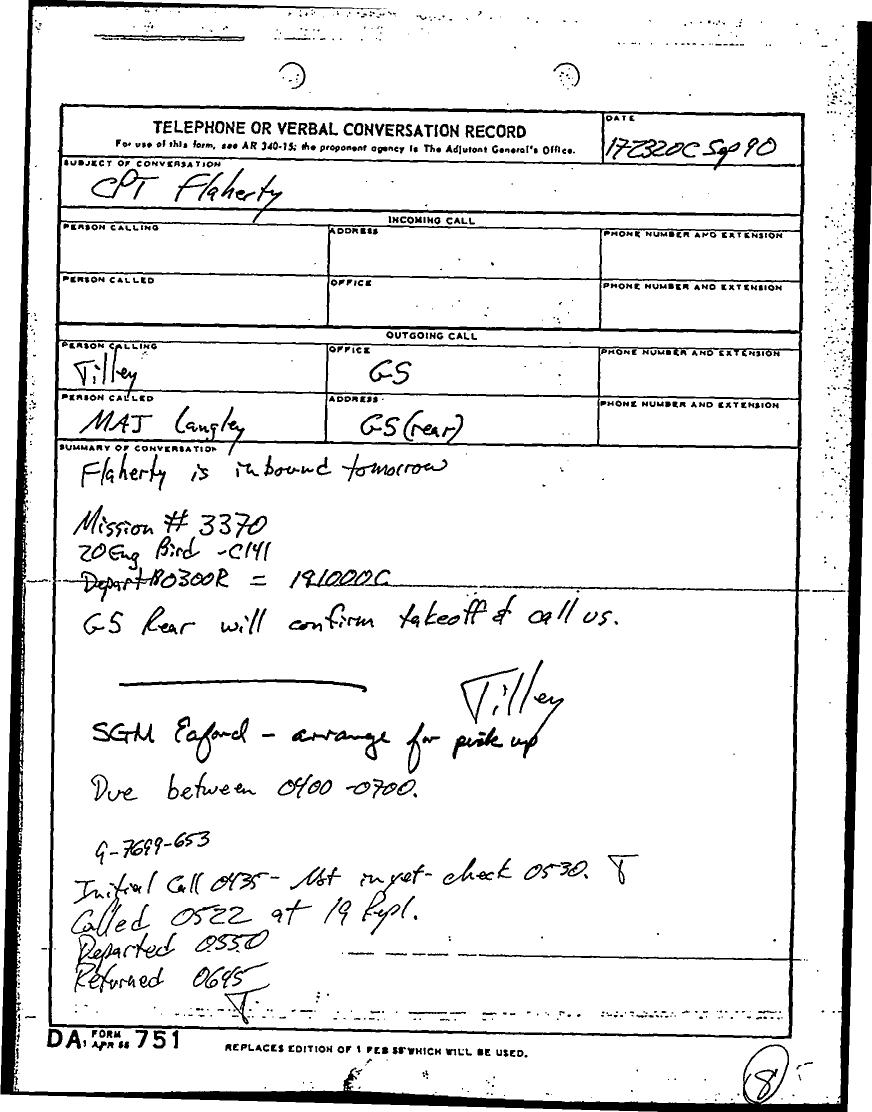 TELEPHONE OR VERBAL CONVERSATION RECORD
For use of this form, see AR 340-15; the proponent agency is The Adjutant General's Office.
DATE
172320C Sep 90
SUBJECT OF CONVERSATION
CPT Flaherty
INCOMING CALL
PERSON CALLING
ADDRESS
PHONE NUMBER AND EXTENSION
PERSON CALLED
OFFICE
PHONE NUMBER AND EXTENSION
OUTGOING CALL
PERSON CALLING
Tilley
OFFICE
G5
PHONE NUMBER AND EXTENSION
PERSON CALLED
MAJ Langley
ADDRESS
G5 (rear)
PHONE NUMBER AND EXTENSION
SUMMARY OF CONVERSATION
Flaherty is inbound tomorrow
Mission # 3370
20 Eng Bird - C141
Depart 0300R = 191000C
G5 Rear will confirm takeoff & call us.
Tilley
SGM - arrange for pick up
Due between 0400 - 0700.
9-7699-653
Initial Call 0435 - Not in yet - check 0530. T
Called 0522 at 19 Repl.
Departed 0550
Returned 0645
T
DA FORM 751
1 APR 66
REPLACES EDITION OF 1 FEB 58 WHICH WILL BE USED.
8